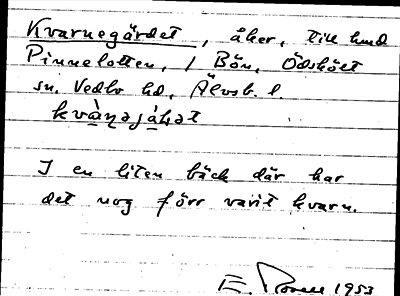 Kvarnegärdet, åker, till hmd
Pinnelotten, 1 Bön, Ödskölt
sn. Vedbo hd, Älvsb. l.
I en liten bäck där har
det nog förr varit kvarn.
E. 1953